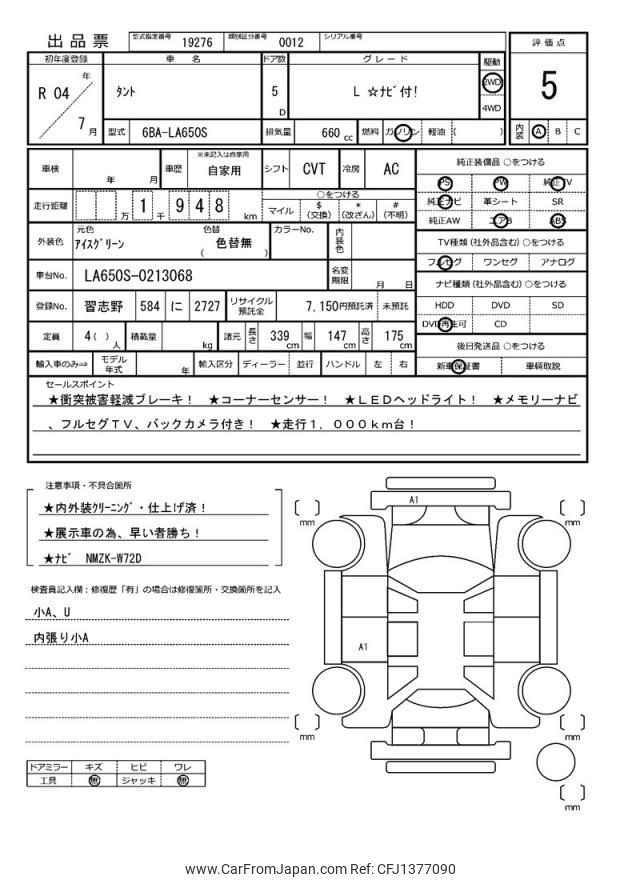 出品票 型式指定番号 19276 類別区分番号 0012 シリアル番号
評価点
5
内装 A B C
初年度登録 車名 ドア数 グレード 駆動
R 04 年 7 月 タント 5 D L ☆ナビ付! 2WD 4WD
型式 6BA-LA650S 排気量 660 cc 燃料 ガソリン 軽油 ( )
車検 年 月 車歴 ※未記入は自家用 自家用 シフト CVT 冷房 AC
走行距離 万 1 千 9 4 8 km ○をつける
マイル $ (交換) * (改ざん) # (不明)
外装色 元色 アイスグリーン 色替 ( 色替無 ) カラーNo. 内装色
車台No. LA650S-0213068 名変期限 月 日
登録No. 習志野 584 に 2727 リサイクル預託金 7,150円預託済 未預託
定員 4( )人 積載量 kg 諸元 長さ 339 cm 幅 147 cm 高さ 175 cm
輸入車のみ⇒ モデル年式 年 輸入区分 ディーラー 並行 ハンドル 左 右
純正装備品 ○をつける
PS PW 純正TV
純正ナビ 革シート SR
純正AW エアB ABS
TV種類(社外品含む)○をつける
フルセグ ワンセグ アナログ
ナビ種類(社外品含む)○をつける
HDD DVD SD
DVD再生可 CD
後日発送品 ○をつける
新車保証書 車輌取説
セールスポイント
★衝突被害軽減ブレーキ! ★コーナーセンサー! ★LEDヘッドライト! ★メモリーナビ
、フルセグTV、バックカメラ付き! ★走行1,000km台!
注意事項・不具合箇所
★内外装クリーニング・仕上げ済!
★展示車の為、早い者勝ち!
★ナビ NMZK-W72D
検査員記入欄:修復歴「有」の場合は修復箇所・交換箇所を記入
小A、U
内張り小A
ドアミラー キズ ヒビ ワレ
工具 無 ジャッキ 無
A1
A1
mm
mm
mm
mm
mm
www.CarFromJapan.com Ref: CFJ1377090